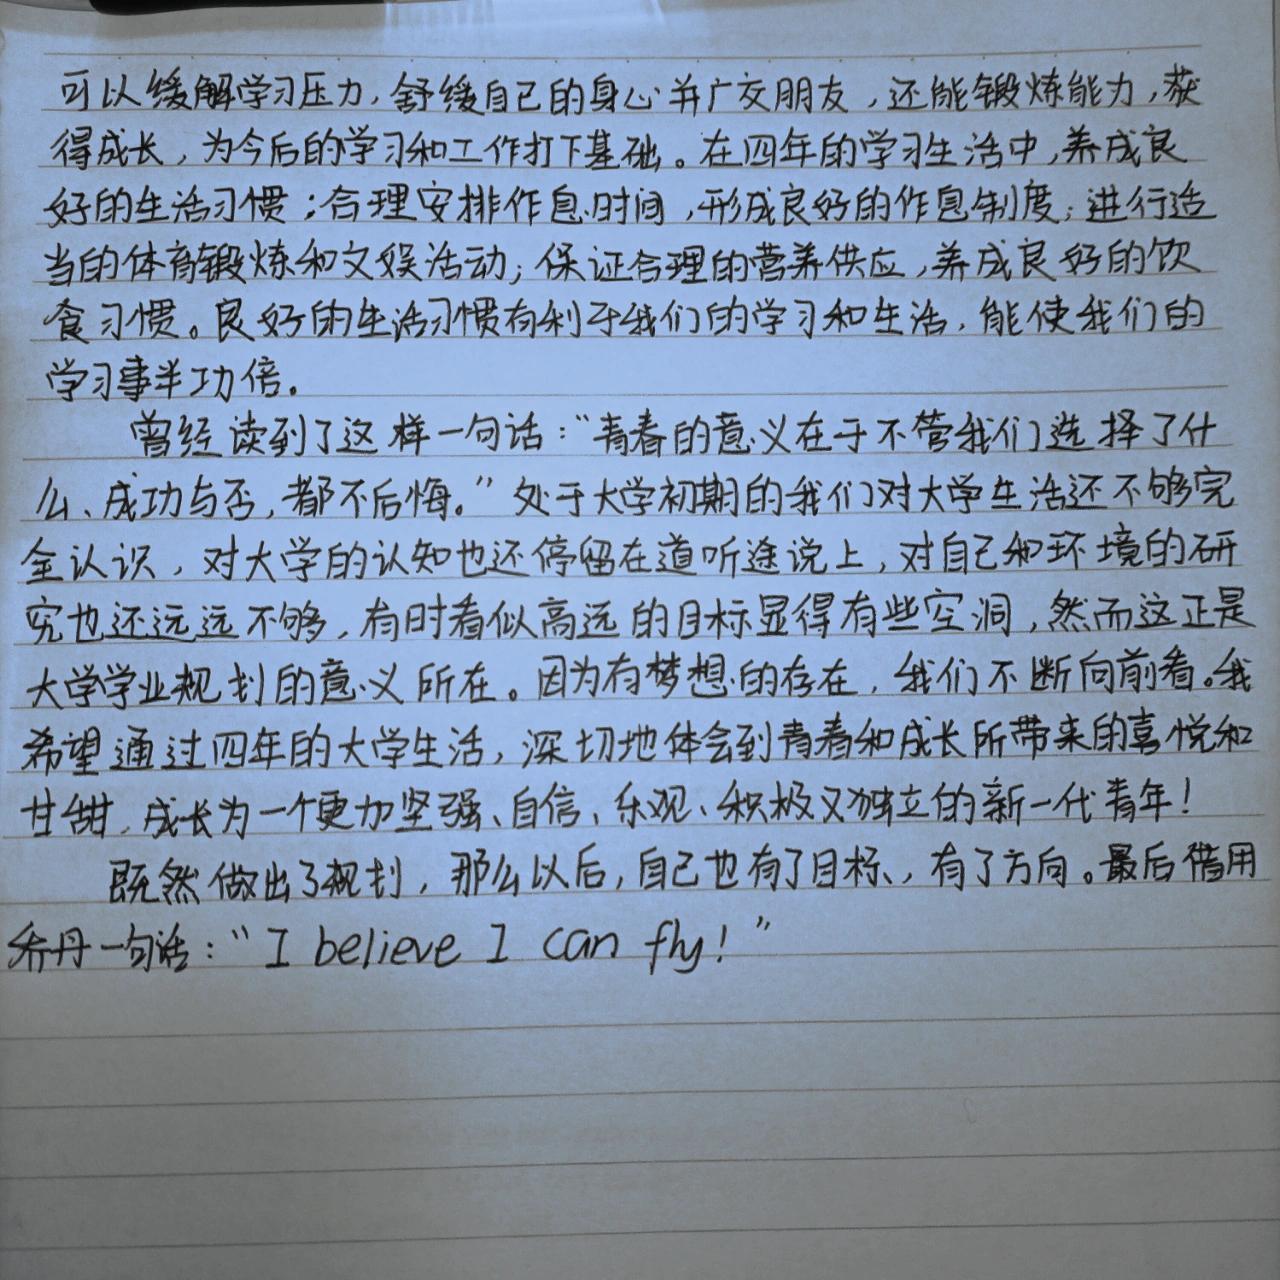 可以缓解学习压力，舒缓自己的身心并广交朋友，还能锻炼能力，获
得成长，为今后的学习和工作打下基础。在四年的学习生活中，养成良
好的生活习惯；合理安排作息时间，形成良好的作息制度；进行适
当的体育锻炼和文娱活动；保证合理的营养供应，养成良好的饮
食习惯。良好的生活习惯有利于我们的学习和生活，能使我们的
学习事半功倍。
曾经读到了这样一句话：“青春的意义在于不管我们选择了什
么、成功与否，都不后悔。”处于大学初期的我们对大学生活还不够完
全认识，对大学的认知也还停留在道听途说上，对自己和环境的研
究也还远远不够，有时看似高远的目标显得有些空洞，然而这正是
大学学业规划的意义所在。因为有梦想的存在，我们不断向前看。我
希望通过四年的大学生活，深切地体会到青春和成长所带来的喜悦和
甘甜，成长为一个更加坚强、自信、乐观、积极又独立的新一代青年！
既然做出了规划，那么以后，自己也有了目标，有了方向。最后借用
乔丹一句话：“I believe I can fly！”